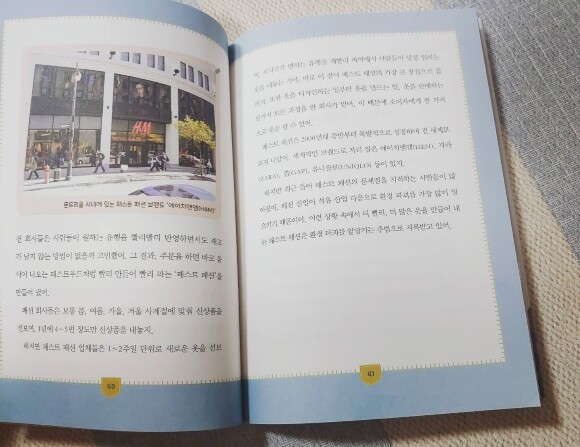 H&M
몬트리올 시내에 있는 패스트 패션 브랜드 '에이치앤엠(H&M)'
션 회사들은 사람들이 원하는 유행을 빨리빨리 반영하면서도 재고
가 남지 않는 방법이 없을까 고민했어. 그 결과, 주문을 하면 바로 음
식이 나오는 패스트푸드처럼 빨리 만들어 빨리 파는 '패스트 패션'을
만들어 냈어.
패션 회사들은 보통 봄, 여름, 가을, 겨울 사계절에 맞춰 신상품을
선보여. 1년에 4~5번 정도만 신상품을 내놓지.
하지만 패스트 패션 업체들은 1~2주일 단위로 새로운 옷을 선보
40
여. 시시각각 변하는 유행을 재빨리 파악해서 사람들이 당장 원하는
옷을 내놓는 거야. 바로 이 점이 패스트 패션의 가장 큰 장점으로 꼽
혀. 또한 옷을 디자인하는 일부터 옷을 만드는 일, 옷을 판매하는
일까지 모든 과정을 한 회사가 맡아. 이 때문에 소비자에게 싼 가격
으로 옷을 팔 수 있어.
패스트 패션은 2000년대 중반부터 폭발적으로 성장하여 전 세계로
퍼져 나갔어. 세계적인 브랜드로 자리 잡은 에이치앤엠(H&M), 자라
(ZARA), 갭(GAP), 유니클로(UNIQLO) 등이 있지.
하지만 최근 들어 패스트 패션의 문제점을 지적하는 사람들이 많
아졌어. 패션 산업이 석유 산업 다음으로 환경 파괴를 가장 많이 일
으키기 때문이야. 이런 상황 속에서 더 빨리, 더 많은 옷을 만들어 내
는 패스트 패션은 환경 파괴를 앞당기는 주범으로 지목받고 있어.
41